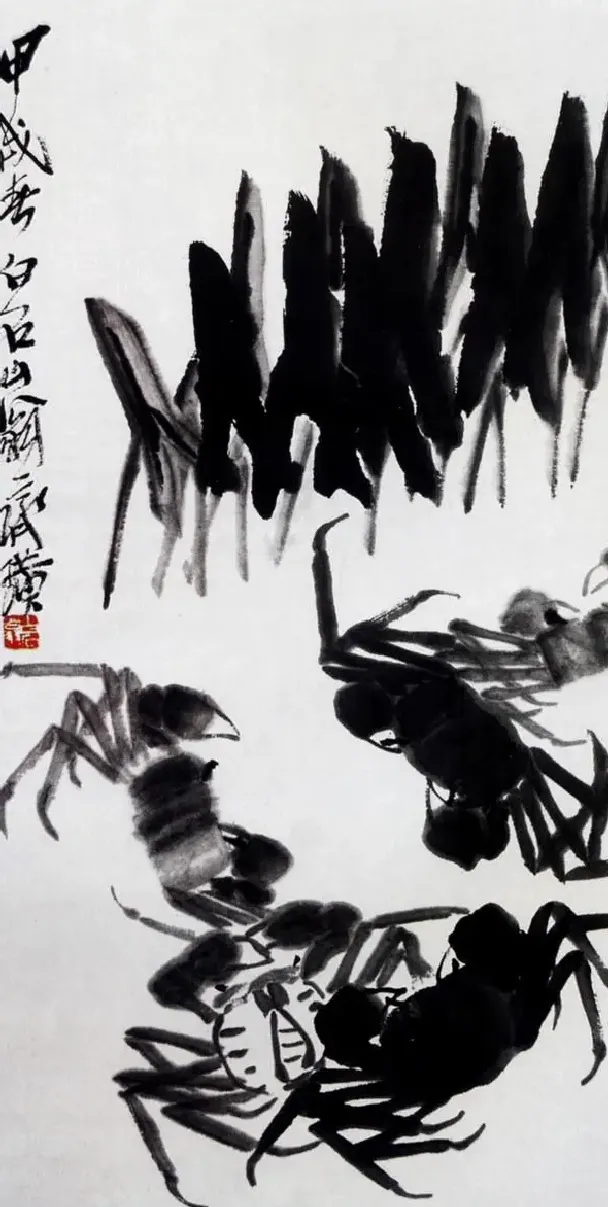 甲戌春白石山翁齊璜